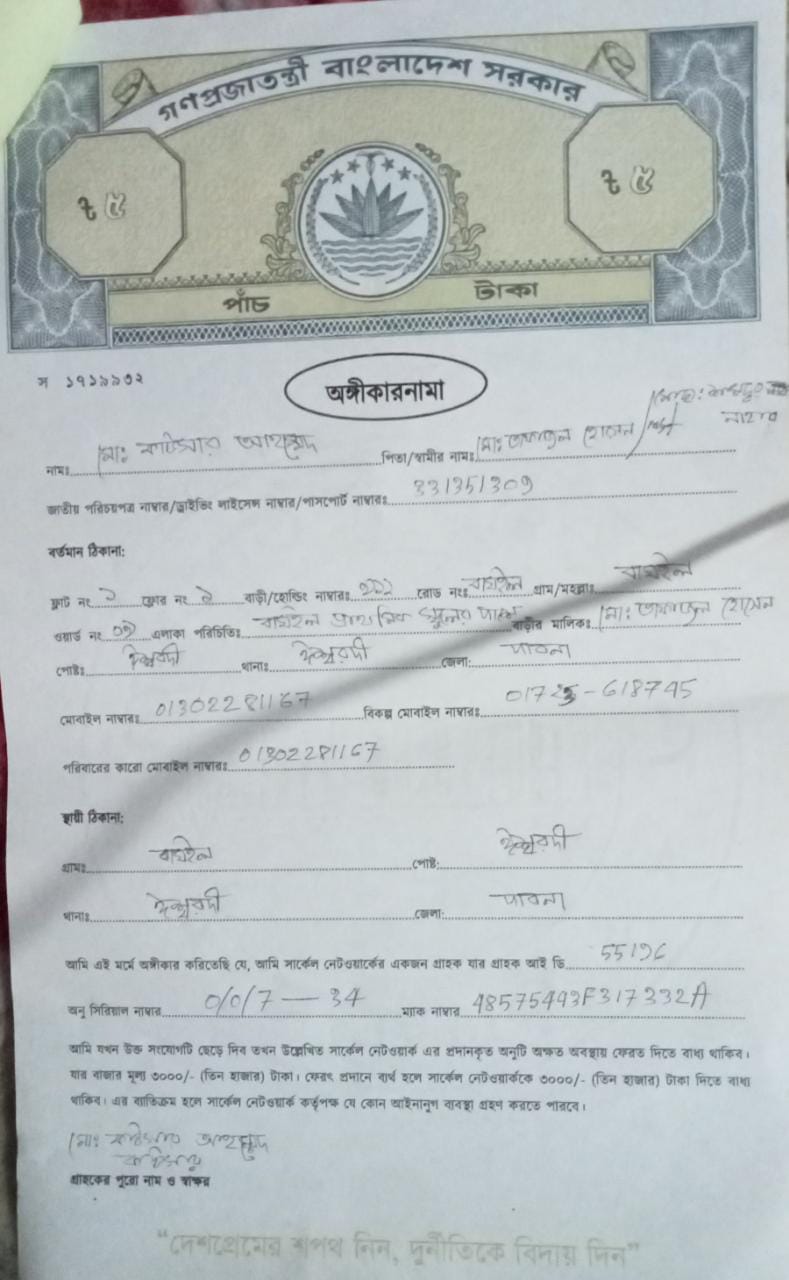 গণপ্রজাতন্ত্রী বাংলাদেশ সরকার
৳ ৫ ৳ ৫
পাঁচ টাকা
স ১৭১৯৯৩২
অঙ্গীকারনামা
নামঃ মোঃ আহম্মেদ পিতা/স্বামীর নামঃ মোঃ হোসেন
জাতীয় পরিচয়পত্র নাম্বার/ড্রাইভিং লাইসেন্স নাম্বার/পাসপোর্ট নাম্বারঃ 331351309
বর্তমান ঠিকানা:
ফ্লাট নং ফ্লোর নং বাড়ী/হোল্ডিং নাম্বারঃ রোড নংঃ বাঘইল গ্রাম/মহল্লাঃ বাঘইল
ওয়ার্ড নং এলাকা পরিচিতিঃ বাঘইল প্রাথমিক স্কুলের পাশে বাড়ীর মালিকঃ মোঃ হোসেন
পোষ্টঃ ঈশ্বরদী থানাঃ ঈশ্বরদী জেলা: পাবনা
মোবাইল নাম্বারঃ 01302281167 বিকল্প মোবাইল নাম্বারঃ 01725-618745
পরিবারের কারো মোবাইল নাম্বারঃ 01302281167
স্থায়ী ঠিকানা:
গ্রামঃ বাঘইল পোষ্ট: ঈশ্বরদী
থানাঃ ঈশ্বরদী জেলা: পাবনা
আমি এই মর্মে অঙ্গীকার করিতেছি যে, আমি সার্কেল নেটওয়ার্কের একজন গ্রাহক যার গ্রাহক আই ডি 55196
অনু সিরিয়াল নাম্বার 0/0/7 — 34 ম্যাক নাম্বার 48575443F317332A
আমি যখন উক্ত সংযোগটি ছেড়ে দিব তখন উল্লেখিত সার্কেল নেটওয়ার্ক এর প্রদানকৃত অনুটি অক্ষত অবস্থায় ফেরত দিতে বাধ্য থাকিব।
যার বাজার মূল্য ৩০০০/- (তিন হাজার) টাকা। ফেরৎ প্রদানে ব্যর্থ হলে সার্কেল নেটওয়ার্ককে ৩০০০/- (তিন হাজার) টাকা দিতে বাধ্য
থাকিব। এর ব্যতিক্রম হলে সার্কেল নেটওয়ার্ক কর্তৃপক্ষ যে কোন আইনানুগ ব্যবস্থা গ্রহণ করতে পারবে।
মোঃ আহম্মেদ
গ্রাহকের পুরো নাম ও স্বাক্ষর
“দেশপ্রেমের শপথ নিন, দুর্নীতিকে বিদায় দিন”